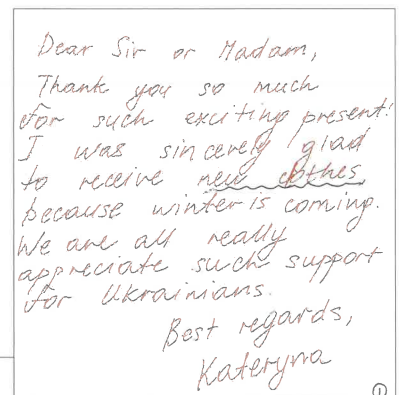 Dear Sir or Madam,
Thank you so much
for such exciting present!
I was sincerely glad
to receive new clothes,
because winter is coming.
We are all really
appreciate such support
for Ukrainians.
Best regards,
Kateryna
1